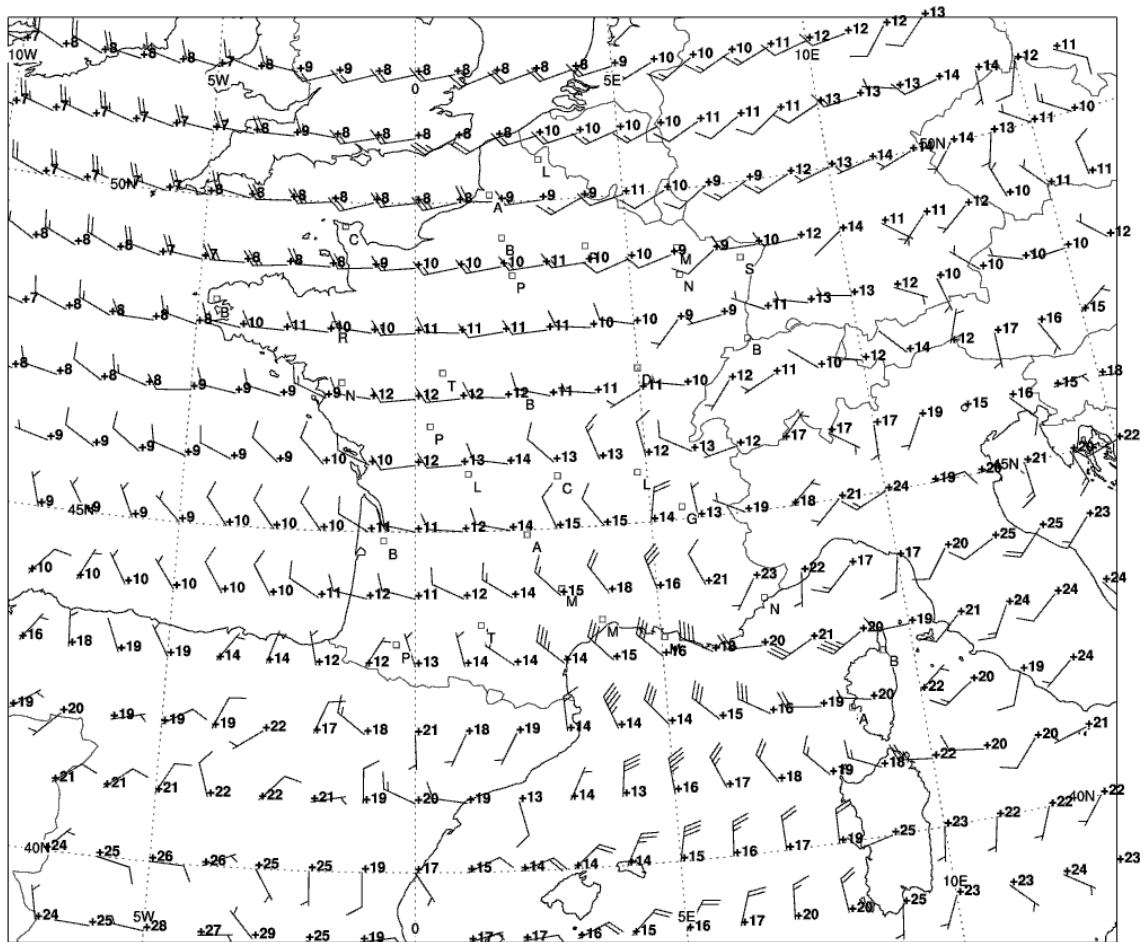 +7 +8 +8 +8 +8 +7 +8 +9 +9 +8 +8 +8 +8 +8 +8 +9 +10 +10 +10 +11 +12 +12 +12 +13
10W 5W 0 5E 10E +12 +11
+7 +7 +7 +7 +7 +7 +8 +9 +8 +8 +8 +8 +8 +10 +10 +10 +10 +11 +11 +11 +13 +13 +13 +14 +14
+11 +10
+7 +7 +7 +7 +7 +8 +8 +8 +8 +8 +8 +8 +9 +9 +9 +11 +10 +9 +9 +12 +13 +14 +14 +14 +13
50N 50N
L
A
+10 +11 +11
+8 +8 +8 +7 +7 +8 +8 +8 +9 +10 +10 +10 +11 +10 +9 +9 +10 +12 +14 +11 +11 +12
C B M
P S N
+10 +10 +10 +12
+7 +8 +8 +8 +8 +10 +11 +10 +10 +11 +11 +11 +11 +10 +10 +9 +9 +11 +13 +13 +12 +10
B R B
+12 +17 +16 +15
+8 +8 +8 +8 +9 +9 +9 +9 +12 +12 +12 +12 +11 +11 +11 +10 +12 +11 +10 +12 +14
N T B D
P
+9 +9 +9 +9 +9 +9 +10 +10 +12 +13 +14 +13 +13 +12 +13 +12 +17 +17 +17 +19 +15 +16 +15 +18
L C L
+9 +9 +9 +9 +10 +10 +10 +11 +11 +12 +14 +15 +15 +14 +13 +19 +18 +21 +24 +19 +21 +22
45N G 45N
B A
+10 +10 +10 +10 +10 +10 +11 +12 +11 +12 +14 +15 +18 +16 +21 +23 +22 +17 +17 +20 +25 +25 +23
M N
+16 +18 +19 +19 +14 +14 +12 +12 +13 +14 +14 +14 +15 +16 +18 +20 +21 +20 +19 +21 +24 +24 +24
P T M B
+19 +20 +19 +19 +19 +22 +17 +18 +21 +18 +19 +14 +14 +14 +15 +16 +19 +20 +22 +20 +19 +24
A
+21 +21 +21 +22 +22 +21 +19 +20 +19 +13 +14 +13 +16 +17 +18 +19 +18 +22 +20 +20 +21
40N 40N
+24 +25 +26 +26 +25 +25 +19 +17 +15 +14 +14 +14 +15 +16 +17 +19 +25 +23 +22 +22 +22
5W 0 5E 10E
+24 +25 +28 +27 +29 +25 +19 +17 +17 +16 +15 +16 +17 +20 +20 +25 +23 +23 +24 +23